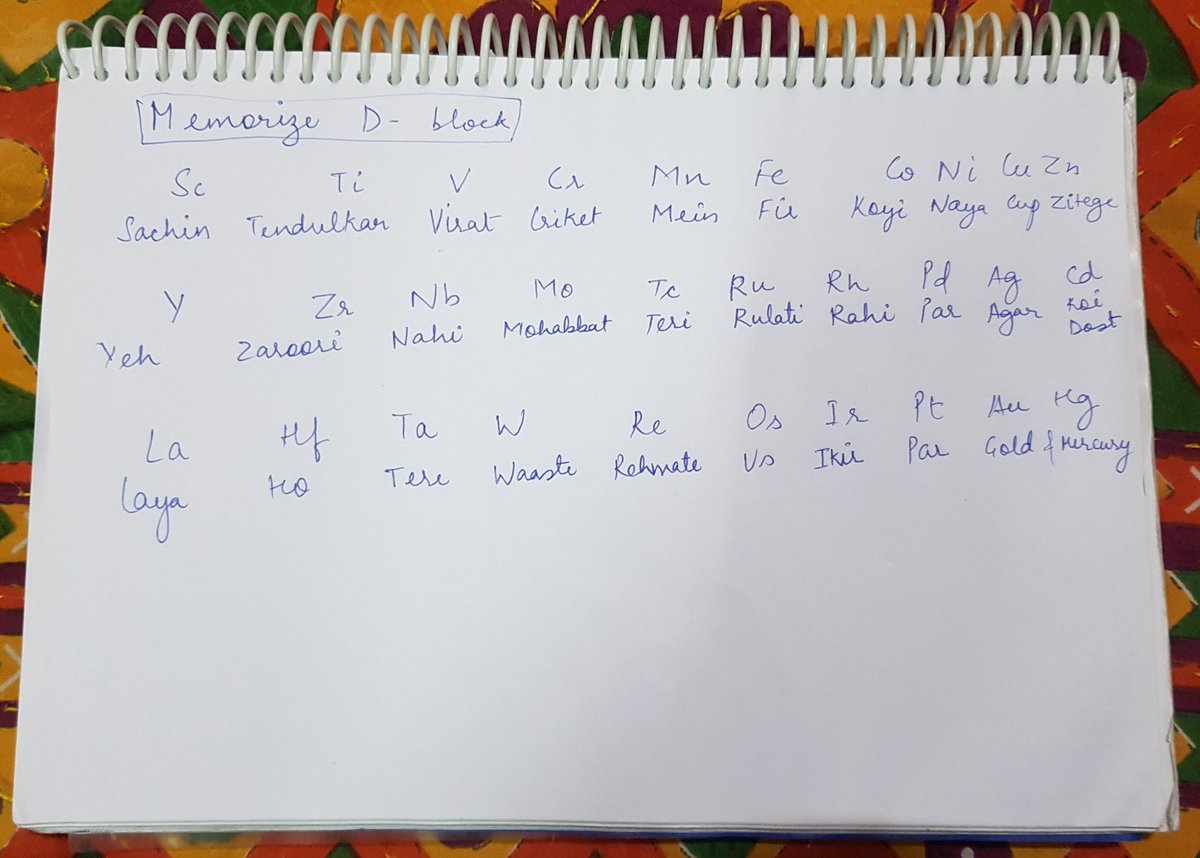 Memorize D- block
Sc Ti V Cr Mn Fe Co Ni Cu Zn
Sachin Tendulkar Virat Criket Mein Fir Koyi Naya Cup Zitege
Y Zr Nb Mo Tc Ru Rh Pd Ag Cd
Yeh Zaroori Nahi Mohabbat Teri Rulati Rahi Par Agar Koi
Dost
La Hf Ta W Re Os Ir Pt Au Hg
Laya HO Tere Waaste Rehmate Us Ikir Par Gold & Mercury